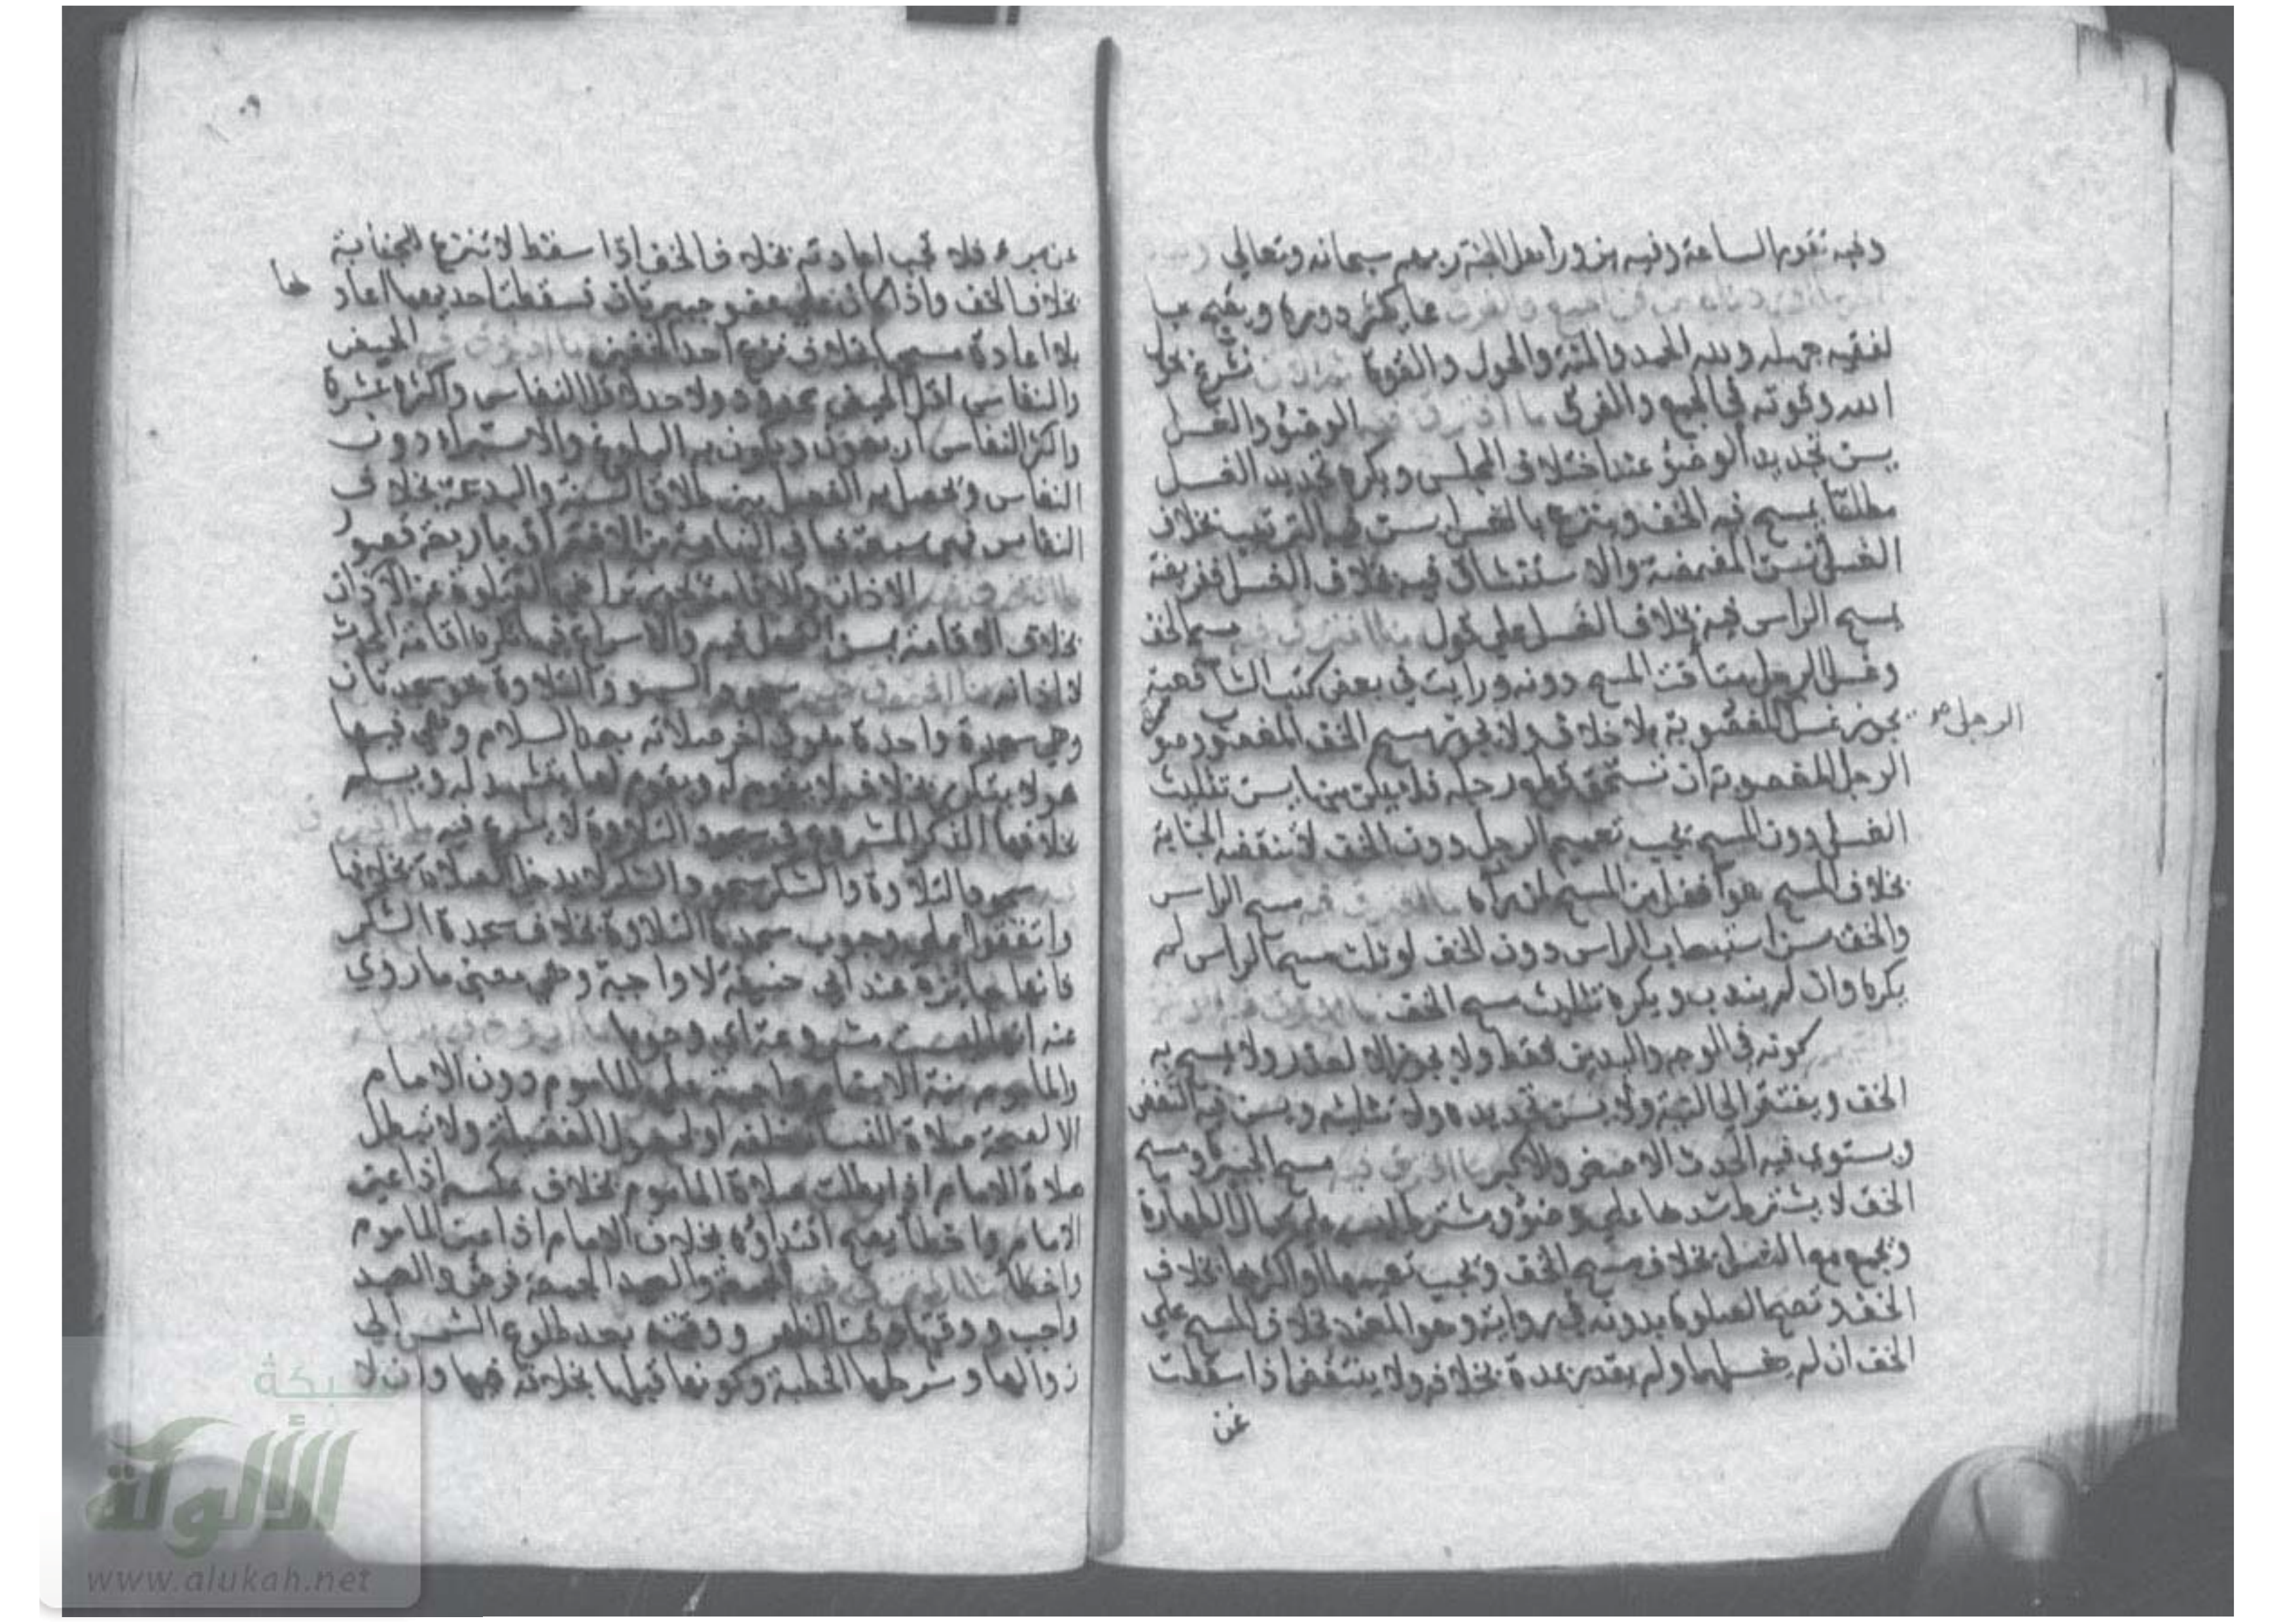 وفيه تقوم الساعة وفيه يزور أهل الجنة ربهم سبحانه وتعالى
في الجمع والفرق عا يكثر دوره ويقبح
لفقيه جهله ولله الحمد والمنة والحول والقوة نشرع بحول
الله وقوته في الجمع والفرق ما افترق فيه الوضوء والغسل
يسن تجديد الوضوء عند اختلاف المجلس ويكره تجديد الغسل
مطلقا يمسح فيه الخف وينزع بالغسل يسن فيه الترتيب بخلاف
الغسل تسن المضمضة والاستنشاق فيه بخلاف الغسل ففريضة
يمسح الراس فيه بخلاف الغسل على قول ما افترق فيه مسح الخف
وغسل الرجل يتأقت المسح دونه ورأيت في بعض كتب الشافعية
يجوز غسل المغصوبة بلا خلاف ولا يجوز مسح الخف المغصوب وصورة
الرجل صح
الرجل المغصوبة ان تستحق قطع رجله فلا يمكن منها يسن تثليث
الغسل دون المسح يجب تعميم الرجل دون الخف لا تنقضه الجنابة
بخلاف المسح هو أفضل من المسح لمن رآه ما افترق فيه مسح الراس
والخف يسن استيعاب الراس دون الخف لو ثلث مسح الراس لم
يكره وان لم يندب ويكره تثليث مسح الخف
كونه في الوجه واليدين فقط ولا يجوز الا لعذر ولا يمسح به
الخف ويفتقر الى النية ولا يسن تجديده ولا تثليثه ويسن فيه النفض
ويستوي فيه الحدث الاصغر والاكبر ما افترق فيه مسح الجبيرة ومسح
الخف لا يشترط شدها على وضوء ويشترط لبسه على كمال الطهارة
ويجمع مع الغسل بخلاف مسح الخف ويجب تعميمها او اكثرها بخلاف
الخف وتصح الصلوة بدونه في رواية وهو المعتمد بخلاف المسح على
الخف ان لم يغسلهما ولم يقدر بمدة بخلافه ولا ينتقض اذا سقطت
عن
عن برء فلا تجب اعادته بخلاف الخف اذا سقط لا تنزع للجنابة
بخلاف الخف واذا كان على عضو جبيرتان فسقطت احديهما اعادها
بلا اعادة مسحها بخلاف نزع احد الخفين ما افترق فيه الحيض
والنفاس اقل الحيض محدود ولا حد لاقل النفاس واكثره عشرة
واكثر النفاس اربعون ويكون به البلوغ والاستبراء دون
النفاس ويحصل به الفصل بين طلاق السنة والبدعة بخلاف
النفاس
ما افترق فيه الاذان والاقامة يجوز تراخي الصلوة عن الاذان
بخلاف الاقامة يسن التمهل فيه والاسراع فيها تكره اقامة المحدث
لا اذانه ما افترق فيه سجود السهو والتلاوة هو سجدتان
وهي سجدة واحدة هو في اخر صلاته بعد السلام وهي فيها
هو لا يتكرر بخلافها لا يقوم له ويقوم لها يتشهد له ويسلم
بخلافها الذكر المشروع في سجود التلاوة لا يشرع فيه
سجود التلاوة والشكر سجود الشكر لا يدخل الصلاة بخلافها
واتفقوا على وجوب سجدة التلاوة بخلاف سجدة الشكر
فانها جائزة عند ابي حنيفة لا واجبة وهي معنى ما روي
عنه انها ليست مشروعة اي وجوبا
والماموم نية الايتمام واجبة على الماموم دون الامام
الا لصحة صلاة النساء خلفه او لحصول الفضيلة ولا تبطل
صلاة الامام اذا بطلت صلاة الماموم بخلاف عكسه اذا عين
الامام واخطأ يصح اقتداؤه بخلاف الامام اذا عين الماموم
واخطأ ما افترق فيه الجمعة والعيد الجمعة فرض والعيد
واجب ووقتها وقت الظهر ووقته بعد طلوع الشمس الى
زوالها وشرطها الخطبة وكونها قبلها بخلافه فيها وان لا